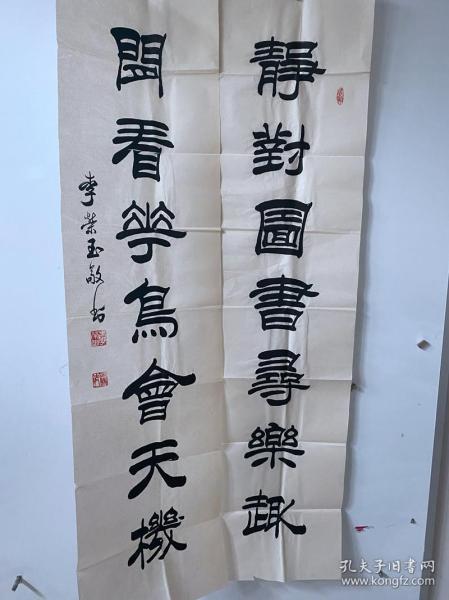 靜對圖書尋樂趣
閒看花鳥會天機
李榮玉敬书
孔夫子旧书网
www.kongfz.com